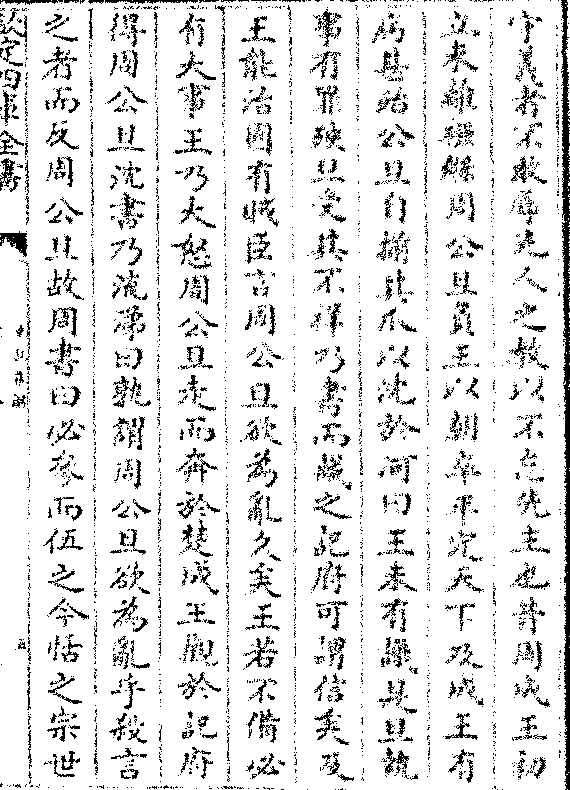 守義者不敢廢先人之教以不忘先主也昔周成王初
立未離襁緥周公旦負王以朝卒平定天下及成王有
病甚殆公旦自揃其爪以沈於河曰王未有識是旦執
事有罪殃旦受其不祥乃書而藏之記府可謂信矣及
王能治國有賊臣言周公旦欲為亂久矣王若不備必
有大事王乃大怒周公旦走而奔於楚成王觀於記府
得周公旦沈書乃流涕曰孰謂周公旦欲為亂乎殺言
之者而反周公旦故周書曰必參而伍之今恬之宗世
欽定四庫全書